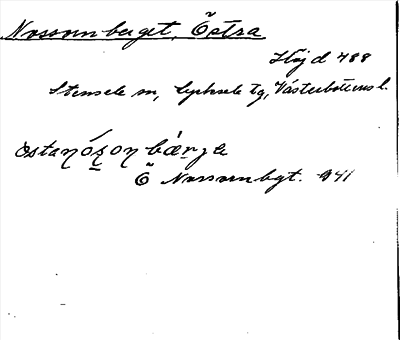 Nossornberget, Östra
Höjd 488
Stensele sn, Lycksele tg, Västerbottens l.
ɷstanós̱on bǽṟɟɷ
Ö Nossornbgt. 941